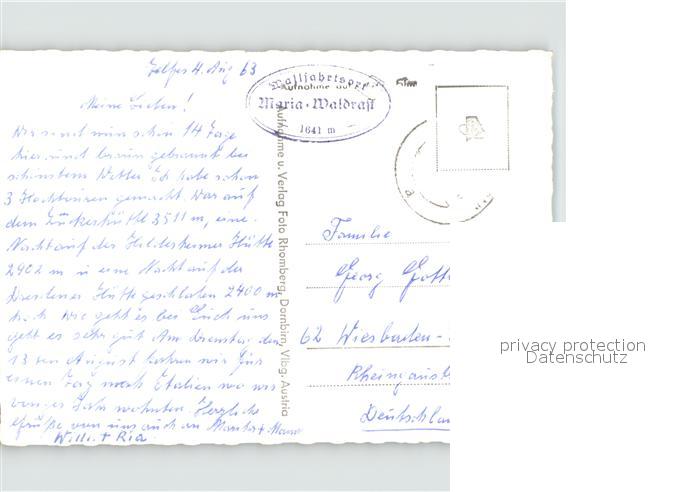 Telfes 4. Aug 63
Meine Lieben!
Wir sind nun schon 14 Tage
hier und braun gebrannt bei
schönstem Wetter. Ich habe schon
3 Hochtouren gemacht. War auf
dem Zuckerhütl 3511 m, eine
Nacht auf der Hildesheimer Hütte
2902 m u eine Nacht auf der
Dresdener Hütte geschlafen 2400 m
hoch. Wie geht es bei Euch uns
geht es sehr gut. Am Dienstag den
13 ten August fahren wir für
einen Tag nach Italien wo wir
voriges Jahr wohnten. Herzliche
Grüße von uns auch an
Willi + Ria
Wallfahrtsort
Aufnahme auf
Maria-Waldrast
1641 m
Aufnahme u. Verlag Foto Rhomberg, Dornbirn, Vlbg. Austria
Familie
Georg Gott
62 Wiesbaden-
Rheingaustr
Deutschla
privacy protection
Datenschutz